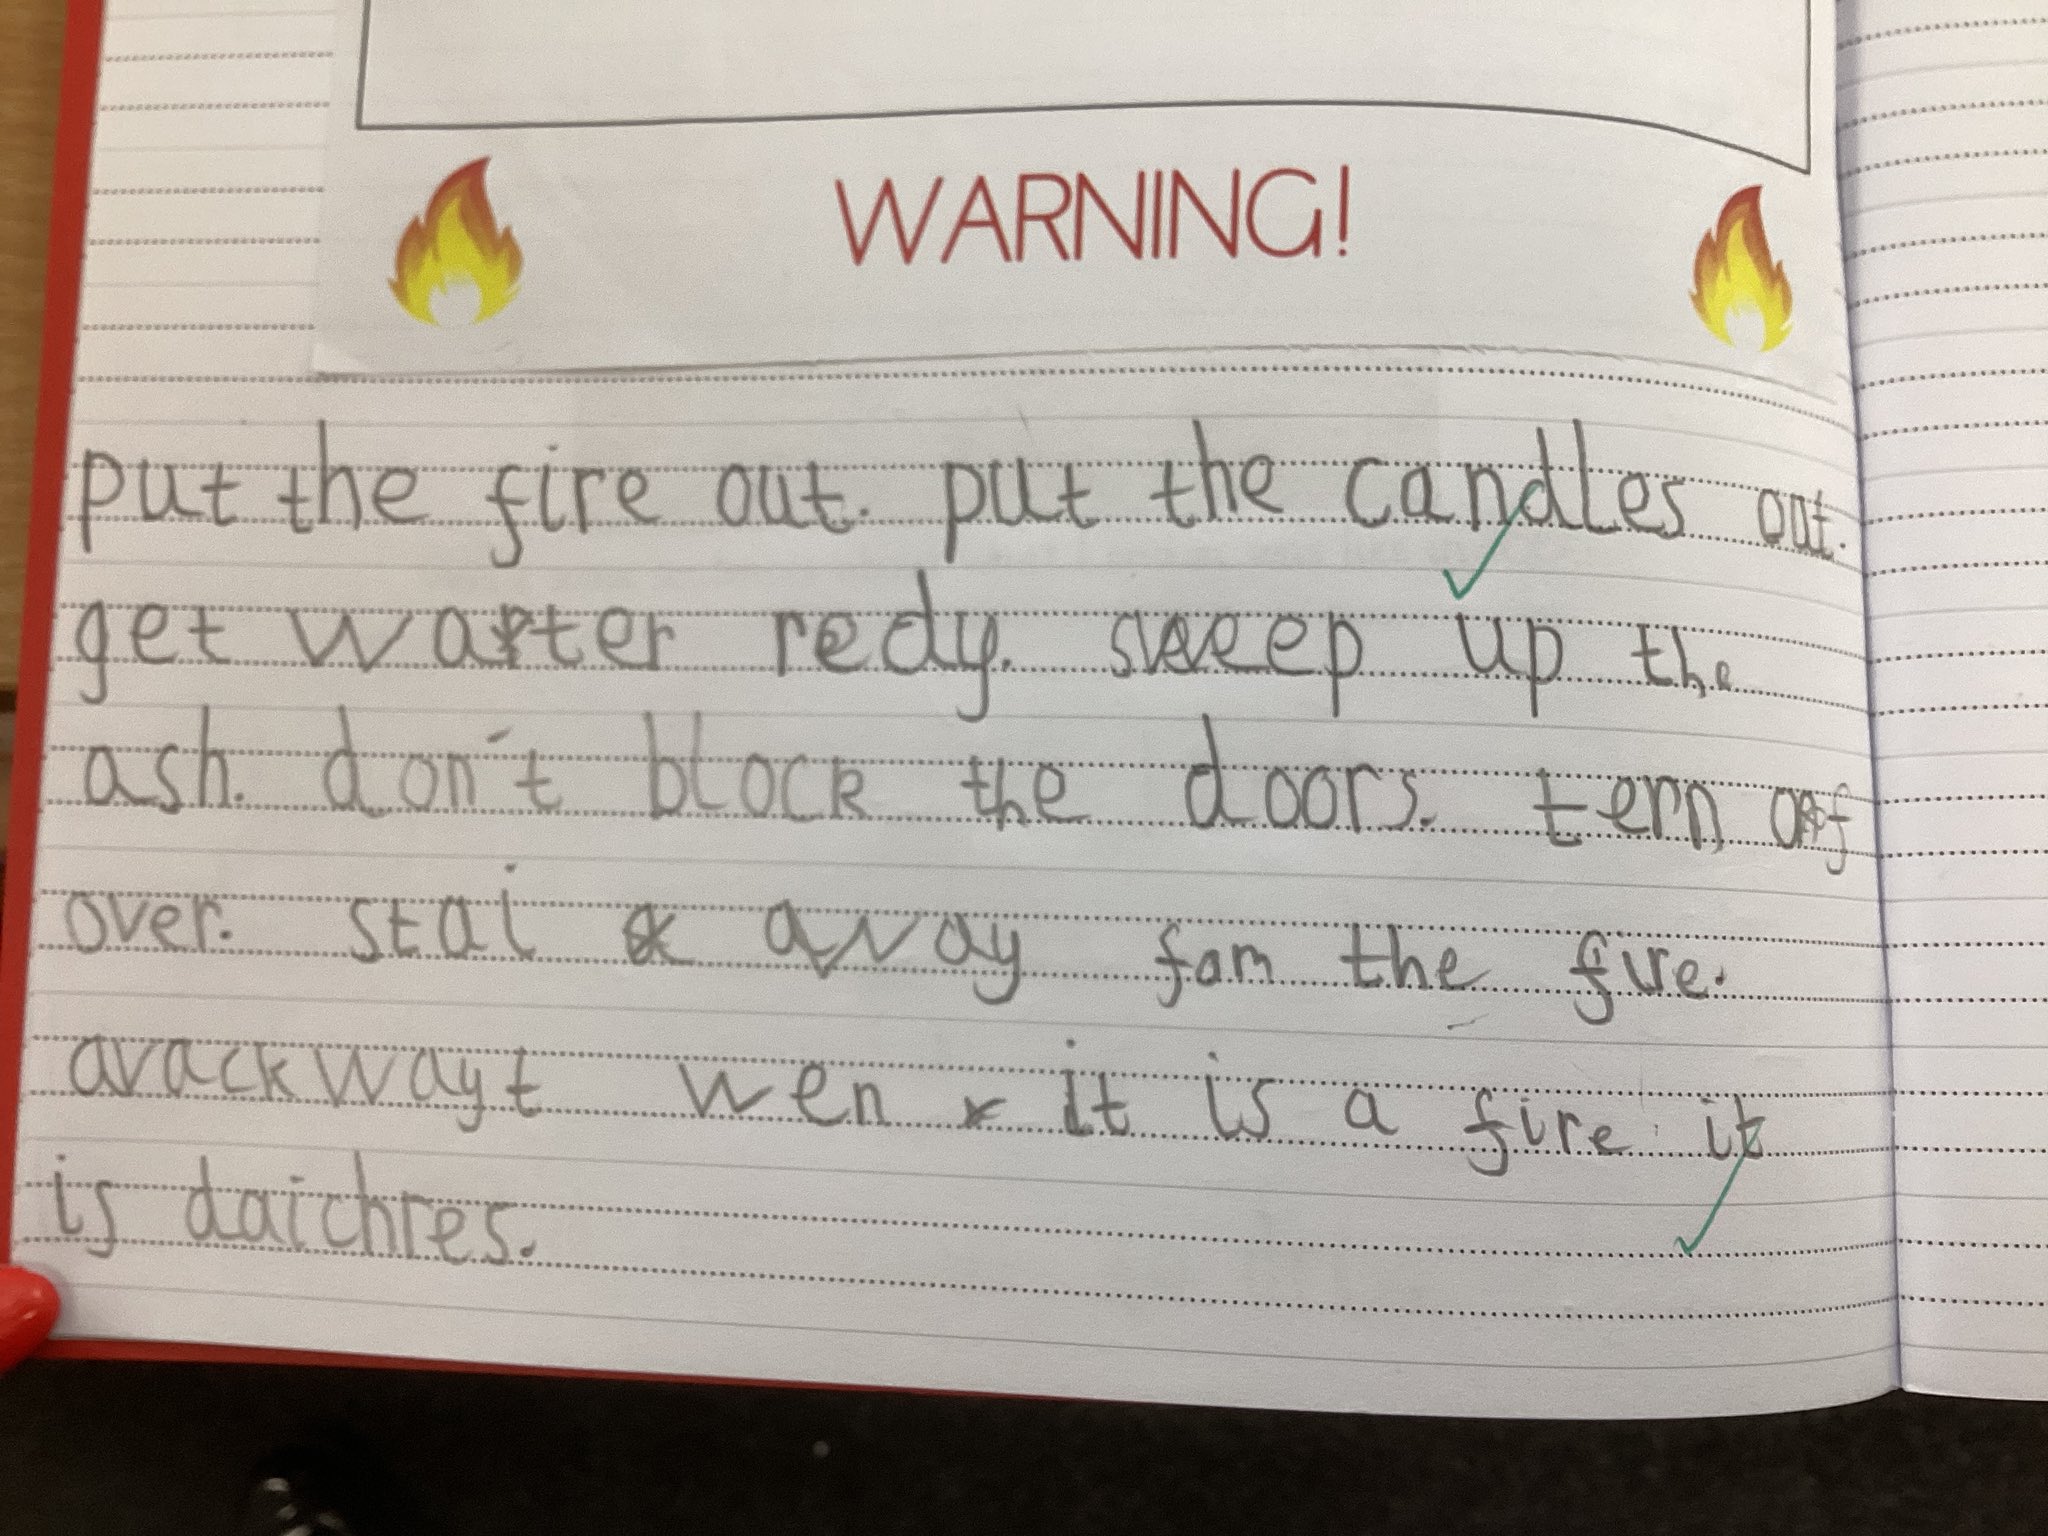 WARNING!
put the fire out. put the candles out.
get warter redy. sweep up the
ash. don't block the doors. tern off
over. stai away fam the fire.
avackwayt wen it is a fire it
is daichres.